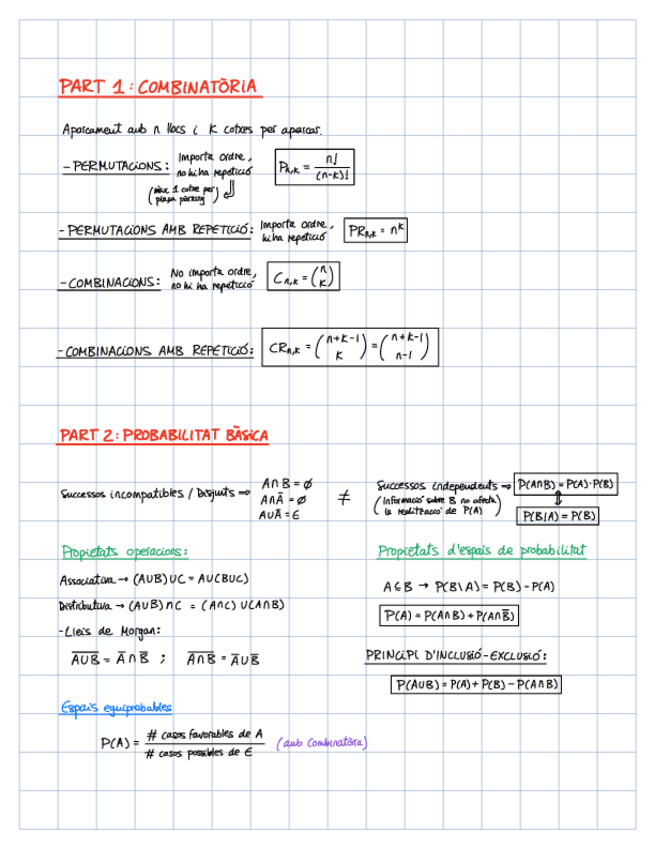 PART 1: COMBINATÒRIA
Aparcament amb n llocs i K cotxes per aparcar.
- PERMUTACIONS: Importa ordre, no hi ha repetició P_{n,k} = n!/(n-k)!
(màx 1 cotxe per plaça pàrking)
- PERMUTACIONS AMB REPETICIÓ: Importa ordre, hi ha repetició PR_{n,k} = n^k
- COMBINACIONS: No importa ordre, no hi ha repetició C_{n,k} = (n K)
- COMBINACIONS AMB REPETICIÓ: CR_{n,k} = (n+k-1 K) = (n+k-1 n-1)
PART 2: PROBABILITAT BÀSICA
Successos incompatibles / Disjunts ⇒ A∩B = ∅
A∩Ā = ∅
A∪Ā = E
≠
Successos independents ⇒ P(A∩B) = P(A)·P(B)
(Informació sobre B no afecta la realització de P(A))
⇕
P(B|A) = P(B)
Propietats operacions:
Associativa → (A∪B)∪C = A∪(B∪C)
Distributiva → (A∪B)∩C = (A∩C)∪(A∩B)
- Lleis de Morgan:
A̅∪̅B̅ = Ā∩B̅ ; A̅∩̅B̅ = Ā∪B̅
Propietats d'espais de probabilitat
A⊆B → P(B\A) = P(B) - P(A)
P(A) = P(A∩B) + P(A∩B̅)
PRINCIPI D'INCLUSIÓ-EXCLUSIÓ:
P(A∪B) = P(A) + P(B) - P(A∩B)
Espais equiprobables
P(A) = # casos favorables de A / # casos possibles de E (amb Combinatòria)